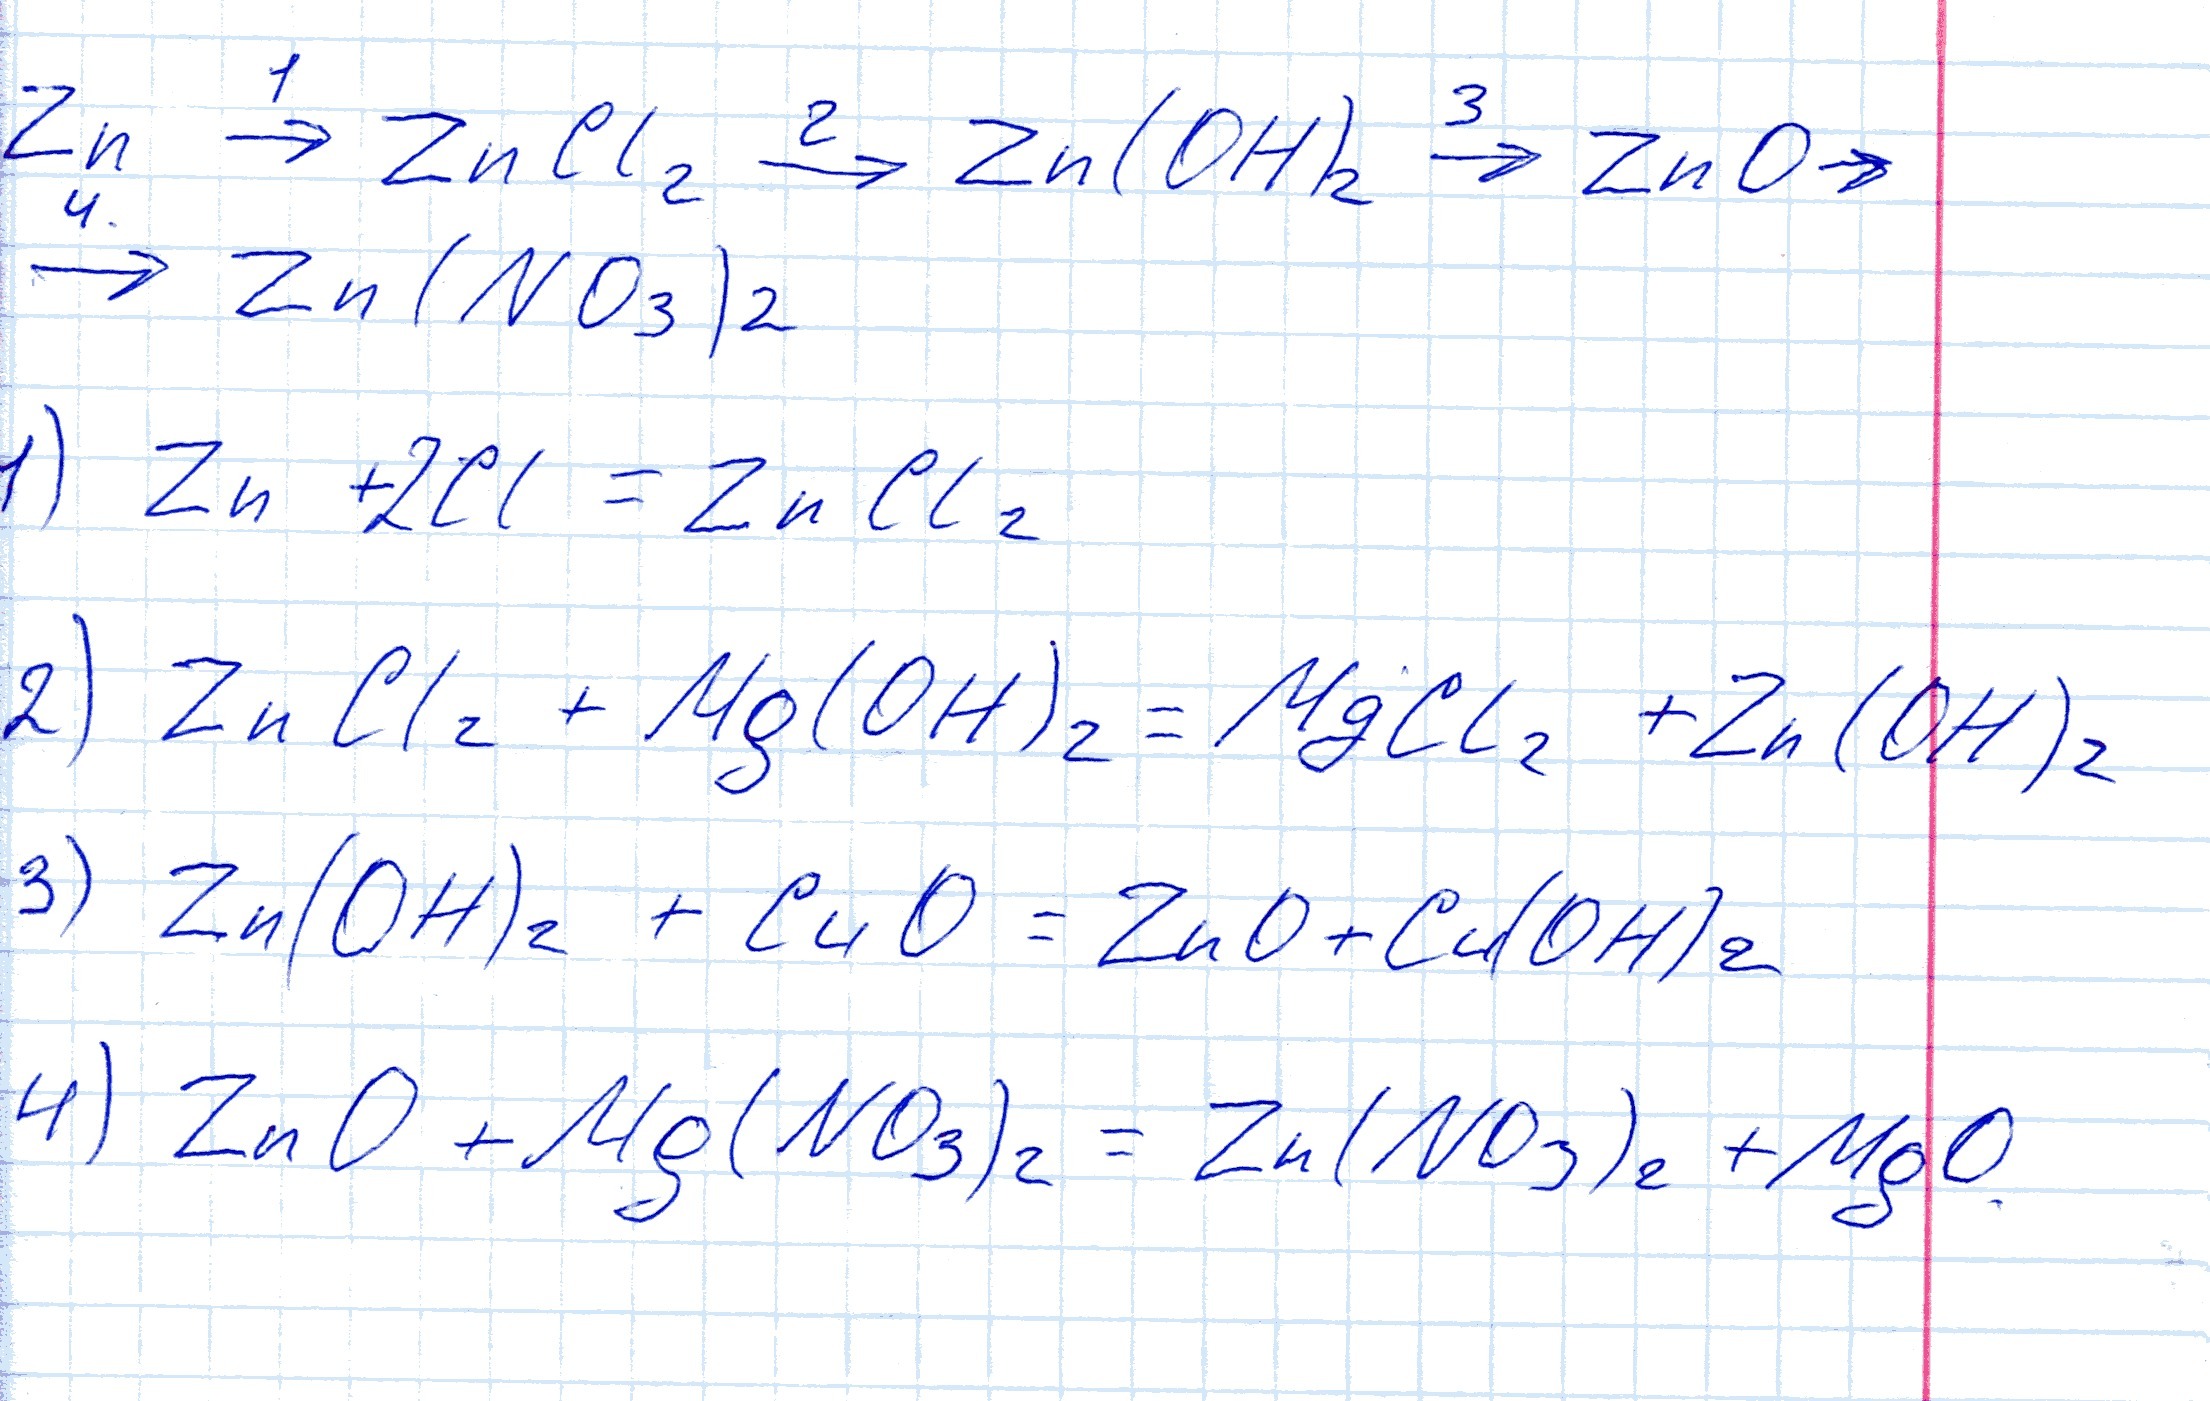 Zn 1→ ZnCl₂ 2→ Zn(OH)₂ 3→ ZnO →
4. → Zn(NO₃)₂
1) Zn + 2Cl = ZnCl₂
2) ZnCl₂ + Mg(OH)₂ = MgCl₂ + Zn(OH)₂
3) Zn(OH)₂ + CuO = ZnO + Cu(OH)₂
4) ZnO + Mg(NO₃)₂ = Zn(NO₃)₂ + MgO.